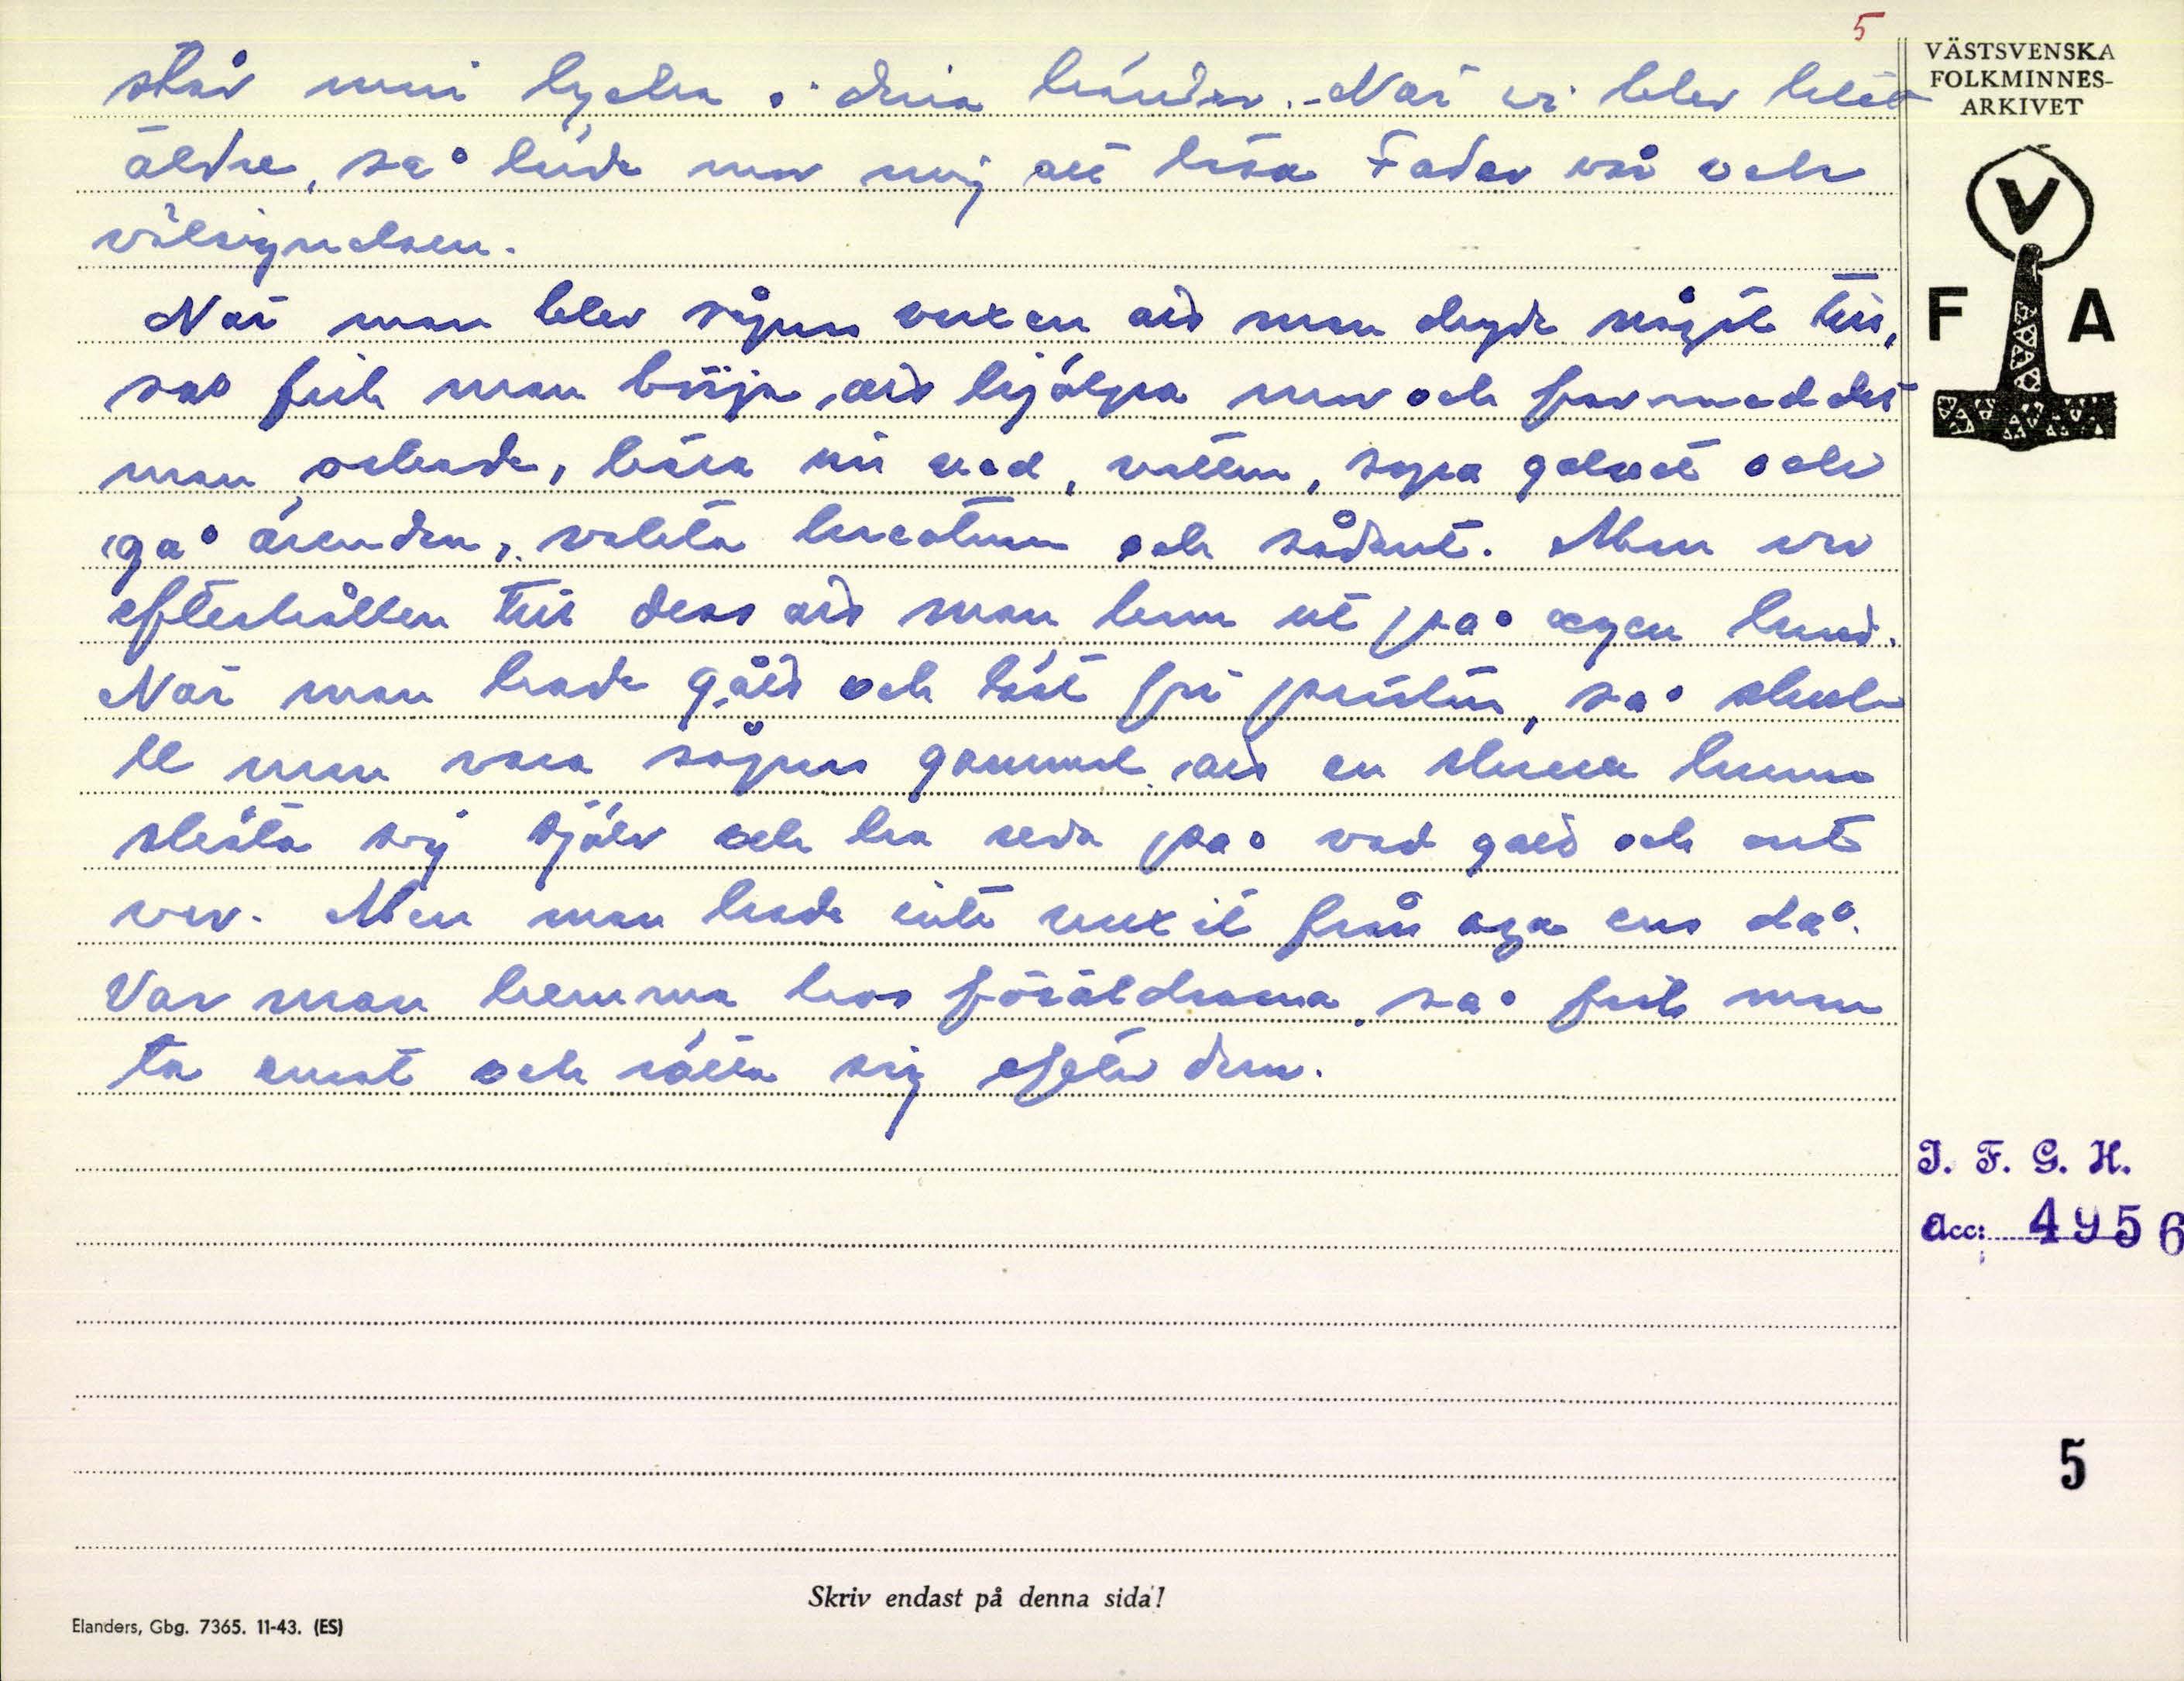 5
står min lycka i dina händer. - När vi blev lite
äldre, så lärde mor mig att läsa Fader vår och
välsignelsen.
När man blev såpass vuxen att man dugde något till,
så fick man börja att hjälpa mor och far med det
man orkade, bära in ved, vatten, sopa golvet och
gå ärenden, valla kreaturen och sådant. Men var
efterhållen till dess att man kom ut på egen hand.
När man hade gått och läst för prästen, så skul-
le man vara såpass gammal att en skulle kunna
sköta sig själv och ha reda på vad gott och ont
var. Men man hade inte vuxit från aga ens då.
Var man hemma hos föräldrarna, så fick man
ta emot och rätta sig efter dem.
VÄSTSVENSKA
FOLKMINNES-
ARKIVET
V
F A
I. F. G. H.
Acc: 4956
5
Skriv endast på denna sida!
Elanders, Gbg. 7365. 11-43. (ES)